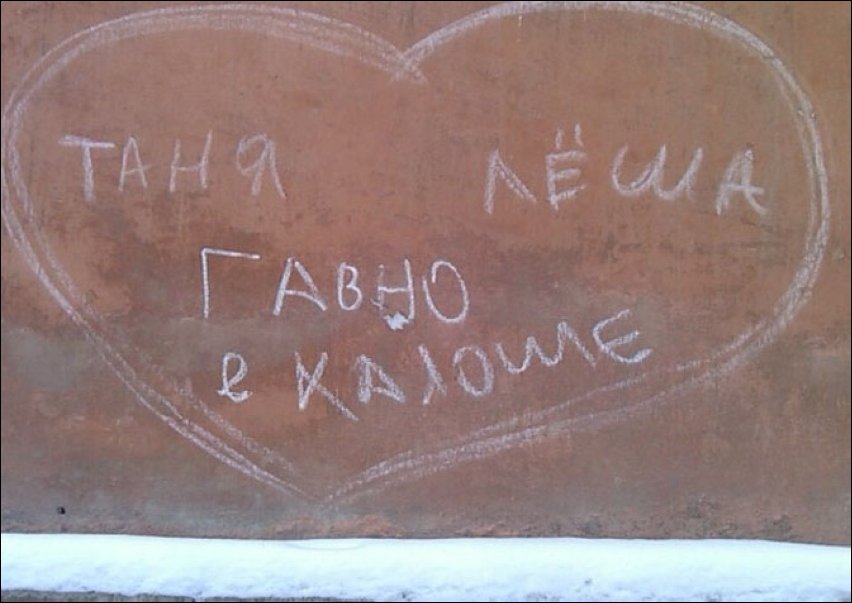 ТАНЯ ЛЁША
ГАВНО
в КАЛОШЕ